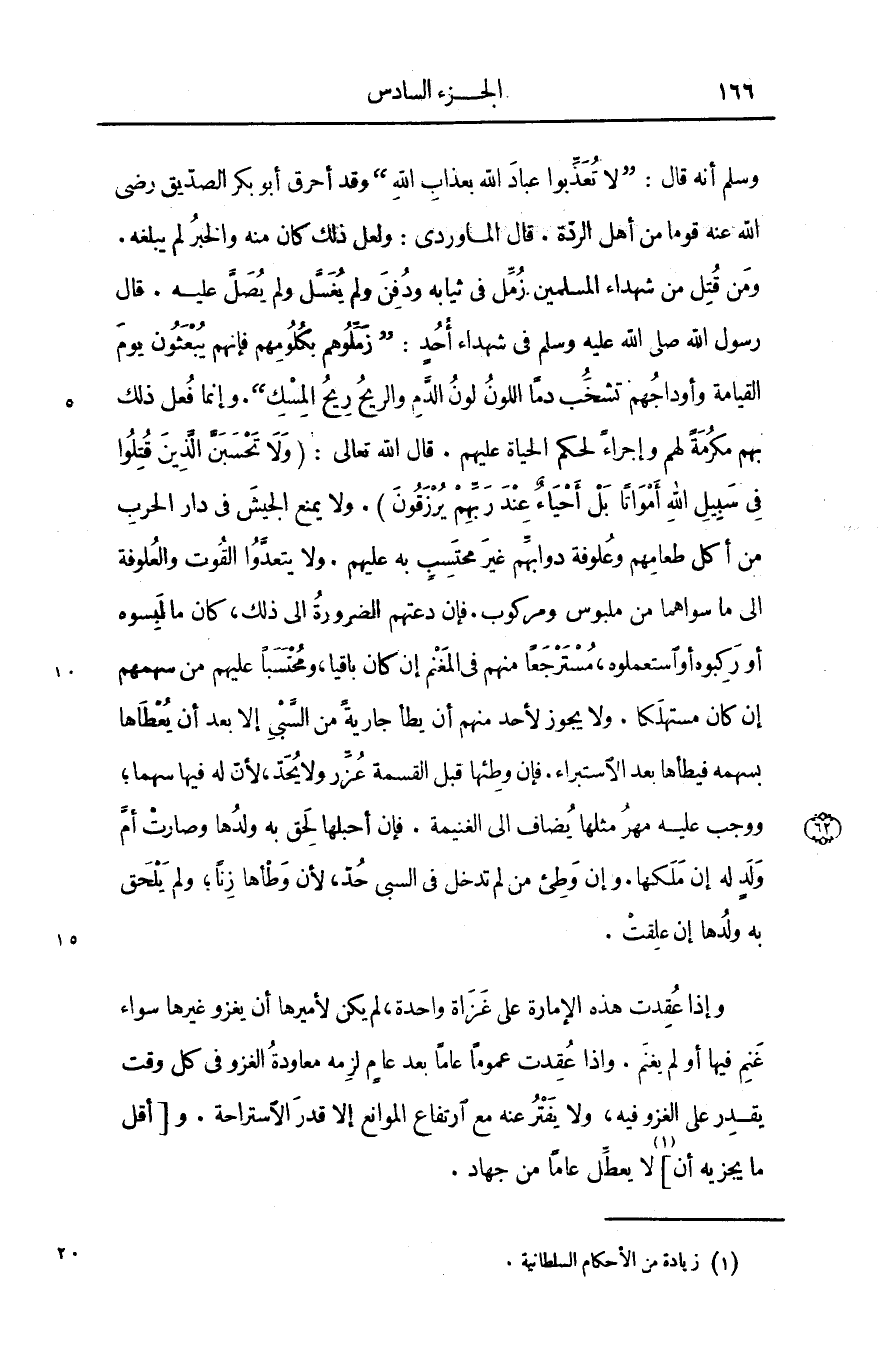 ١٦٦ الجـــزء السادس
وسلم أنه قال : ”لا تُعَذِّبوا عبادَ الله بعذابِ اللهِ“ وقد أحرق أبو بكر الصدّيق رضى
الله عنه قوما من أهل الردّة . قال المـاوردى : ولعل ذلك كان منه والخبرُ لم يبلغه .
ومَن قُتِل من شهداء المسلمين زُمِّل فى ثيابه ودُفِنَ ولم يُغَسَّل ولم يُصَلَّ عليـه . قال
رسول الله صلى الله عليه وسلم فى شهداء أُحُدٍ : ”زَمِّلُوهم بكُلُومِهم فإنهم يُبْعَثُون يومَ
القيامة وأوداجُهم تشخُب دمًا اللونُ لونُ الدَّمِ والريحُ رِيحُ المِسْكِ“. وإنما فُعل ذلك
٥
بهم مكرُمَةً لهم وإجراءً لحكم الحياة عليهم . قال الله تعالى : ﴿ وَلَا تَحْسَبَنَّ الَّذِينَ قُتِلُوا
فِى سَبِيلِ اللهِ أَمْوَاتًا بَلْ أَحْيَاءٌ عِنْدَ رَبِّهِمْ يُرْزَقُونَ ﴾ . ولا يمنع الجيشَ فى دار الحربِ
من أكل طعامِهم وعُلوفة دوابِّهم غيرَ محتَسِبٍ به عليهم . ولا يتعدَّوُا القُوت والعُلوفة
الى ما سواهما من ملبوس ومركوب. فإن دعتهم الضرورةُ الى ذلك، كان ما لَبِسوه
أو رَكِبوه أو ٱستعملوه، مُسْتَرْجَعًا منهم فى المَغْنم إن كان باقيا، ومُحْتَسَباً عليهم من سهمهم
١٠
إن كان مستهلَكا . ولا يجوز لأحد منهم أن يطأ جاريةً من السَّبْىِ إلا بعد أن يُعْطَاها
بسهمه فيطأها بعد الٱستبراء. فإن وطِئها قبل القسمة عُزِّر ولا يُحَدّ، لأنّ له فيها سهما؛
ووجب عليـه مهرُ مثلها يُضاف الى الغنيمة . فإن أحبلها لَحِق به ولدُها وصارتْ أمَّ
٦٢
وَلَدٍ له إن مَلَكها. وإن وَطِئ من لم تدخل فى السبى حُدّ، لأن وَطْأها زِنًا؛ ولم يَلْحَق
به ولُدها إن علِقتْ .
١٥
وإذا عُقِدت هذه الإمارة على غَزَاة واحدة، لم يكن لأميرها أن يغزو غيرها سواء
غَنِم فيها أو لم يغنَم . واذا عُقِدت عمومًا عامًا بعد عامٍ لزِمه معاودةُ الغزو فى كل وقت
يقـدِر على الغزو فيه، ولا يَفْتُر عنه مع ٱرتفاع الموانع إلا قدرَ الٱستراحة . و [ أقل
ما يجزيه أن ](١) لا يعطِّل عامًا من جهاد .
(١) زيادة من الأحكام السلطانية .
٢٠